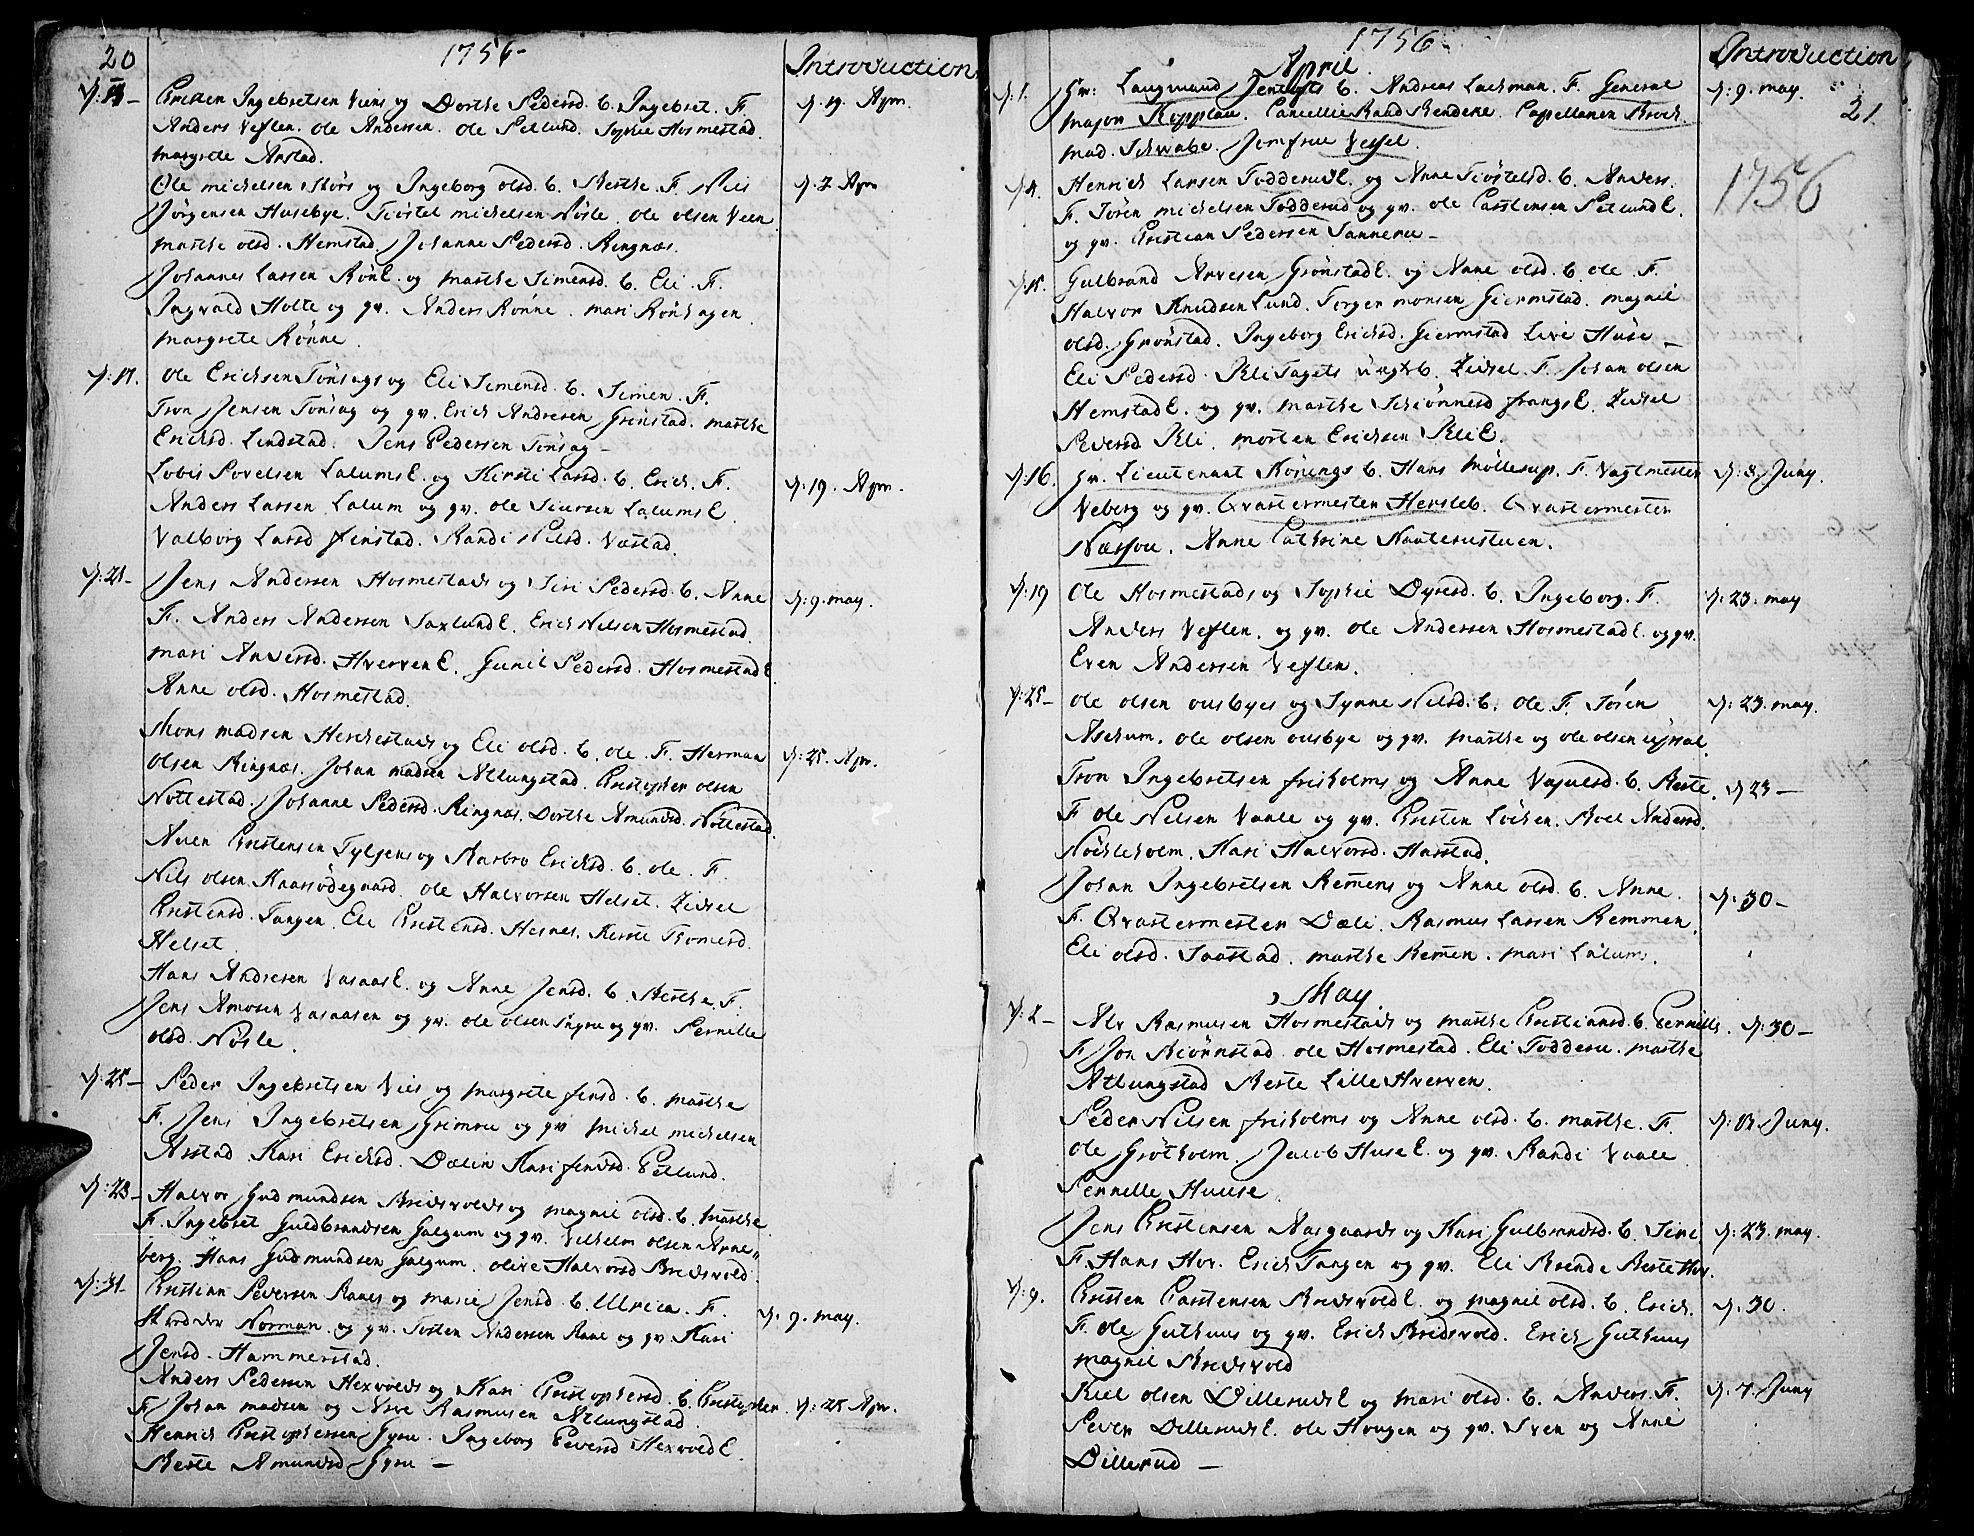 20
1756-
Introduction
Cristen Ingebretsen Viens og Dorthe Pedersd. b. Ingebret. F.
d. 19. Apr.
Anders Veflen. Ole Andersen. Ole Petlund. Sophie Hosmestad.
margrete Arstad.
Ole michelsen Stórs og Ingeborg olsd. b. Berthe. F. Nils
d. 7 Apr
Jörgensen Husebye. Tióstel michelsen Nósle. ole olsen Veen
marthe olsd. Hemstad. Johanne Pedersd. Ringnæs.
Johannes Larsen Rön E. og marthe Simensd. b. Eli. F.
Ingvald Holte og gv. Anders Rönne. mari Rönhagen
margrete Rönne.
d: 17.
Ole Ericksen Tönsags og Eli Simensd. b. Simen. F.
Tron Jensen Tönsag og gv. Erich Andresen Grönstad. marthe
Ericksd. Lindstad. Jens Pedersen Tönsag-
Lobis Povelsen Lalums E. og Kirsti Larsd. b. Erich. F.
d: 19. Apr.
Anders Larsen Lalum og gv. ole Siursen Lalums E.
Valborg Larsd finstad. Randi Nilsd. Væstad.
d: 21-
Jens Andersen Hosmestads og Siri Pedersd. b. Anne
d: 9. may.
F. Anders Andersen Saxlund E. Erich Nilsen Hosmestad.
mari Andersd. Hverven E. Gunil Pedersd. Hosmestad E
Anne olsd. Hosmestad.
Mons madsen Herckestads og Eli olsd. b. ole. F. Herman
d: 25. Apr.
olsen Ringnæs. Johan madsen Atlungstad. Cristopher olsen
Nottestad. Johanne Pedersd. Ringnæs. Dorthe Amundsd. Nottestad.
Auen Cristensen Tyljens og Barbro Ericksd. b. ole. F.
Nils olsen Kaasödegaard. ole Halvorsen Helset. Zidsel
Cristensd. Tangen. Eli Cristensd. Hesnes. Kerste Thomesd.
Helset.
Hans Andresen Vasaas E. og Anne Jensd. b. Berthe. F.
Jens Amosen Vasaasen og gv. ole olsen Gyru og gv. Pernille
olsd. Nósle.
d: 25-
Peder Ingebretsen Viis og margrete finsd. b. marthe
F. Jens Ingebretsen Grimru og gv michel michelsen
Arstad. Kari Ericksd. Dælin Kari findsd. Petlund.
d: 28-
Halvor Gudmundsen Bredsvolds og magnil olsd. b. marthe
F. Ingebret Guldbrandsen Galgum og gv. Vilhelm olsen Arne-
berg. Hans Gudmundsen Galgum. olive Halvorsd Bredsvold.
d: 31-
Cristian Peversen Raaes og marie Jensd. b. Ulrica. F.
d. 9. may.
Norman og gv. Tosten Andersen Raae og gv Kari
Jensd. Hammerstad.
Anders Pedersen Hexvolds og Kari Cristophersd. b. Cristopher.
d: 25 Apr.
F. Johan madsen og Rasmusen Atlungstad
Henrich Cristophersen Gyru. Ingeborg Peversd Hexvold E.
Berte Amundsd Gyru -
1756.
Introduction
21.
April.
d. 1.
Hr: Laugmand b. Andreas Lachman. F. General
d: 9. may.
major Kopplau. CancellieRaad Rendene. Capellanen Broch.
mad. Schwabe. Jomfrue Vessel.
1756
d 4.
Henrich Larsen Todderud E. og Anne Tiostelsd. b. Anders.
F. Sören michelsen Todderud og gv. ole Carstensen Petlund E.
og gv. Cristian Pedersen Sanneru-
Gulbrand Arvesen Grönstad E. og Anne olsd. b. ole. F.
Halvor Knudsen Lund. Torger monsen Giermstad. magnil
olsd. Grönstad. Ingeborg Ericksd. Giermstad Live Huse -
Eli Pedersd. b. Zidsel. F. Johan olsen
Hemstad E. og gv. marthe Schiönnerd frangs E. Zidsel
Peversd Kli. morten Ericksen Kli E.
d: 16.
Hr. Lieutenant Könings b. Hans Möllerup. F. Vagtmester
d: 8. Juny.
Veberg og gv. Qvartermester Hersleb. Qvartermester
Næsfou. Anne Cathrine Nauterustuen.
d: 19
Ole Hosmestads og Sophie Dyresd. b. Ingeborg. F.
d: 23. may
Anders Veflen. og gv. ole Andersen Hosmestad E. og gv.
Even Andersen Veflen.
d: 25-
ole olsen ousbyes og Synne Nilsd. b. ole. F. Sören
d: 23. may.
Aschum. ole olsen ousbye og gv. marthe og ole olsen
Tron Ingebretsen frisholms og Anne b. Berte.
d 23-
F ole Nilsen Vaale og gv. Cristen Löcken. Roel Andersd.
Nöckleholm. Kari Halvorsd. Harstad.
Johan Ingebretsen Remens og Anne olsd. b. Anne.
d: 30-
F. Qvartermester Dæli. Rasmus Larsen Remmen.
Eli olsd. Saastad. marthe Remen. mari Lalum.
May.
d: 2-
Alv Rasmusen Hosmestads og marthe Cristiansd. b. Pernille.
d: 30-
F. Jon Biörnstad. ole Hosmestad. Eli Todderu. marthe
Atlungstad Berte Lille Hverven.
Peder Nilsen frisholms og Anne olsd. b. marthe. F.
ole Grötholm. Jacob Huse E. og gv. Randi Vaale
Pernille Huuse.
Jens Cristensen Aasgaards og Kari Gulbrandsd. b. Siri
d: 23. may.
F. Hans Hov. Erich Tangen og gv. Eli Brende Berte Hov.
d: 9.
Cristen Carstensen Bredsvold E. og magnil olsd. b. Erich.
d: 30.
F. ole Guthuus og gv. Erich Bredsvold. Erich Guthuus
magnil Bredsvold
Kiel olsen Dillerud E og mari olsd. b. Anders. F.
d: 7. Juny
Pever Dillerud E. ole Hougen og gv. Sven og Anne
Dillerud -